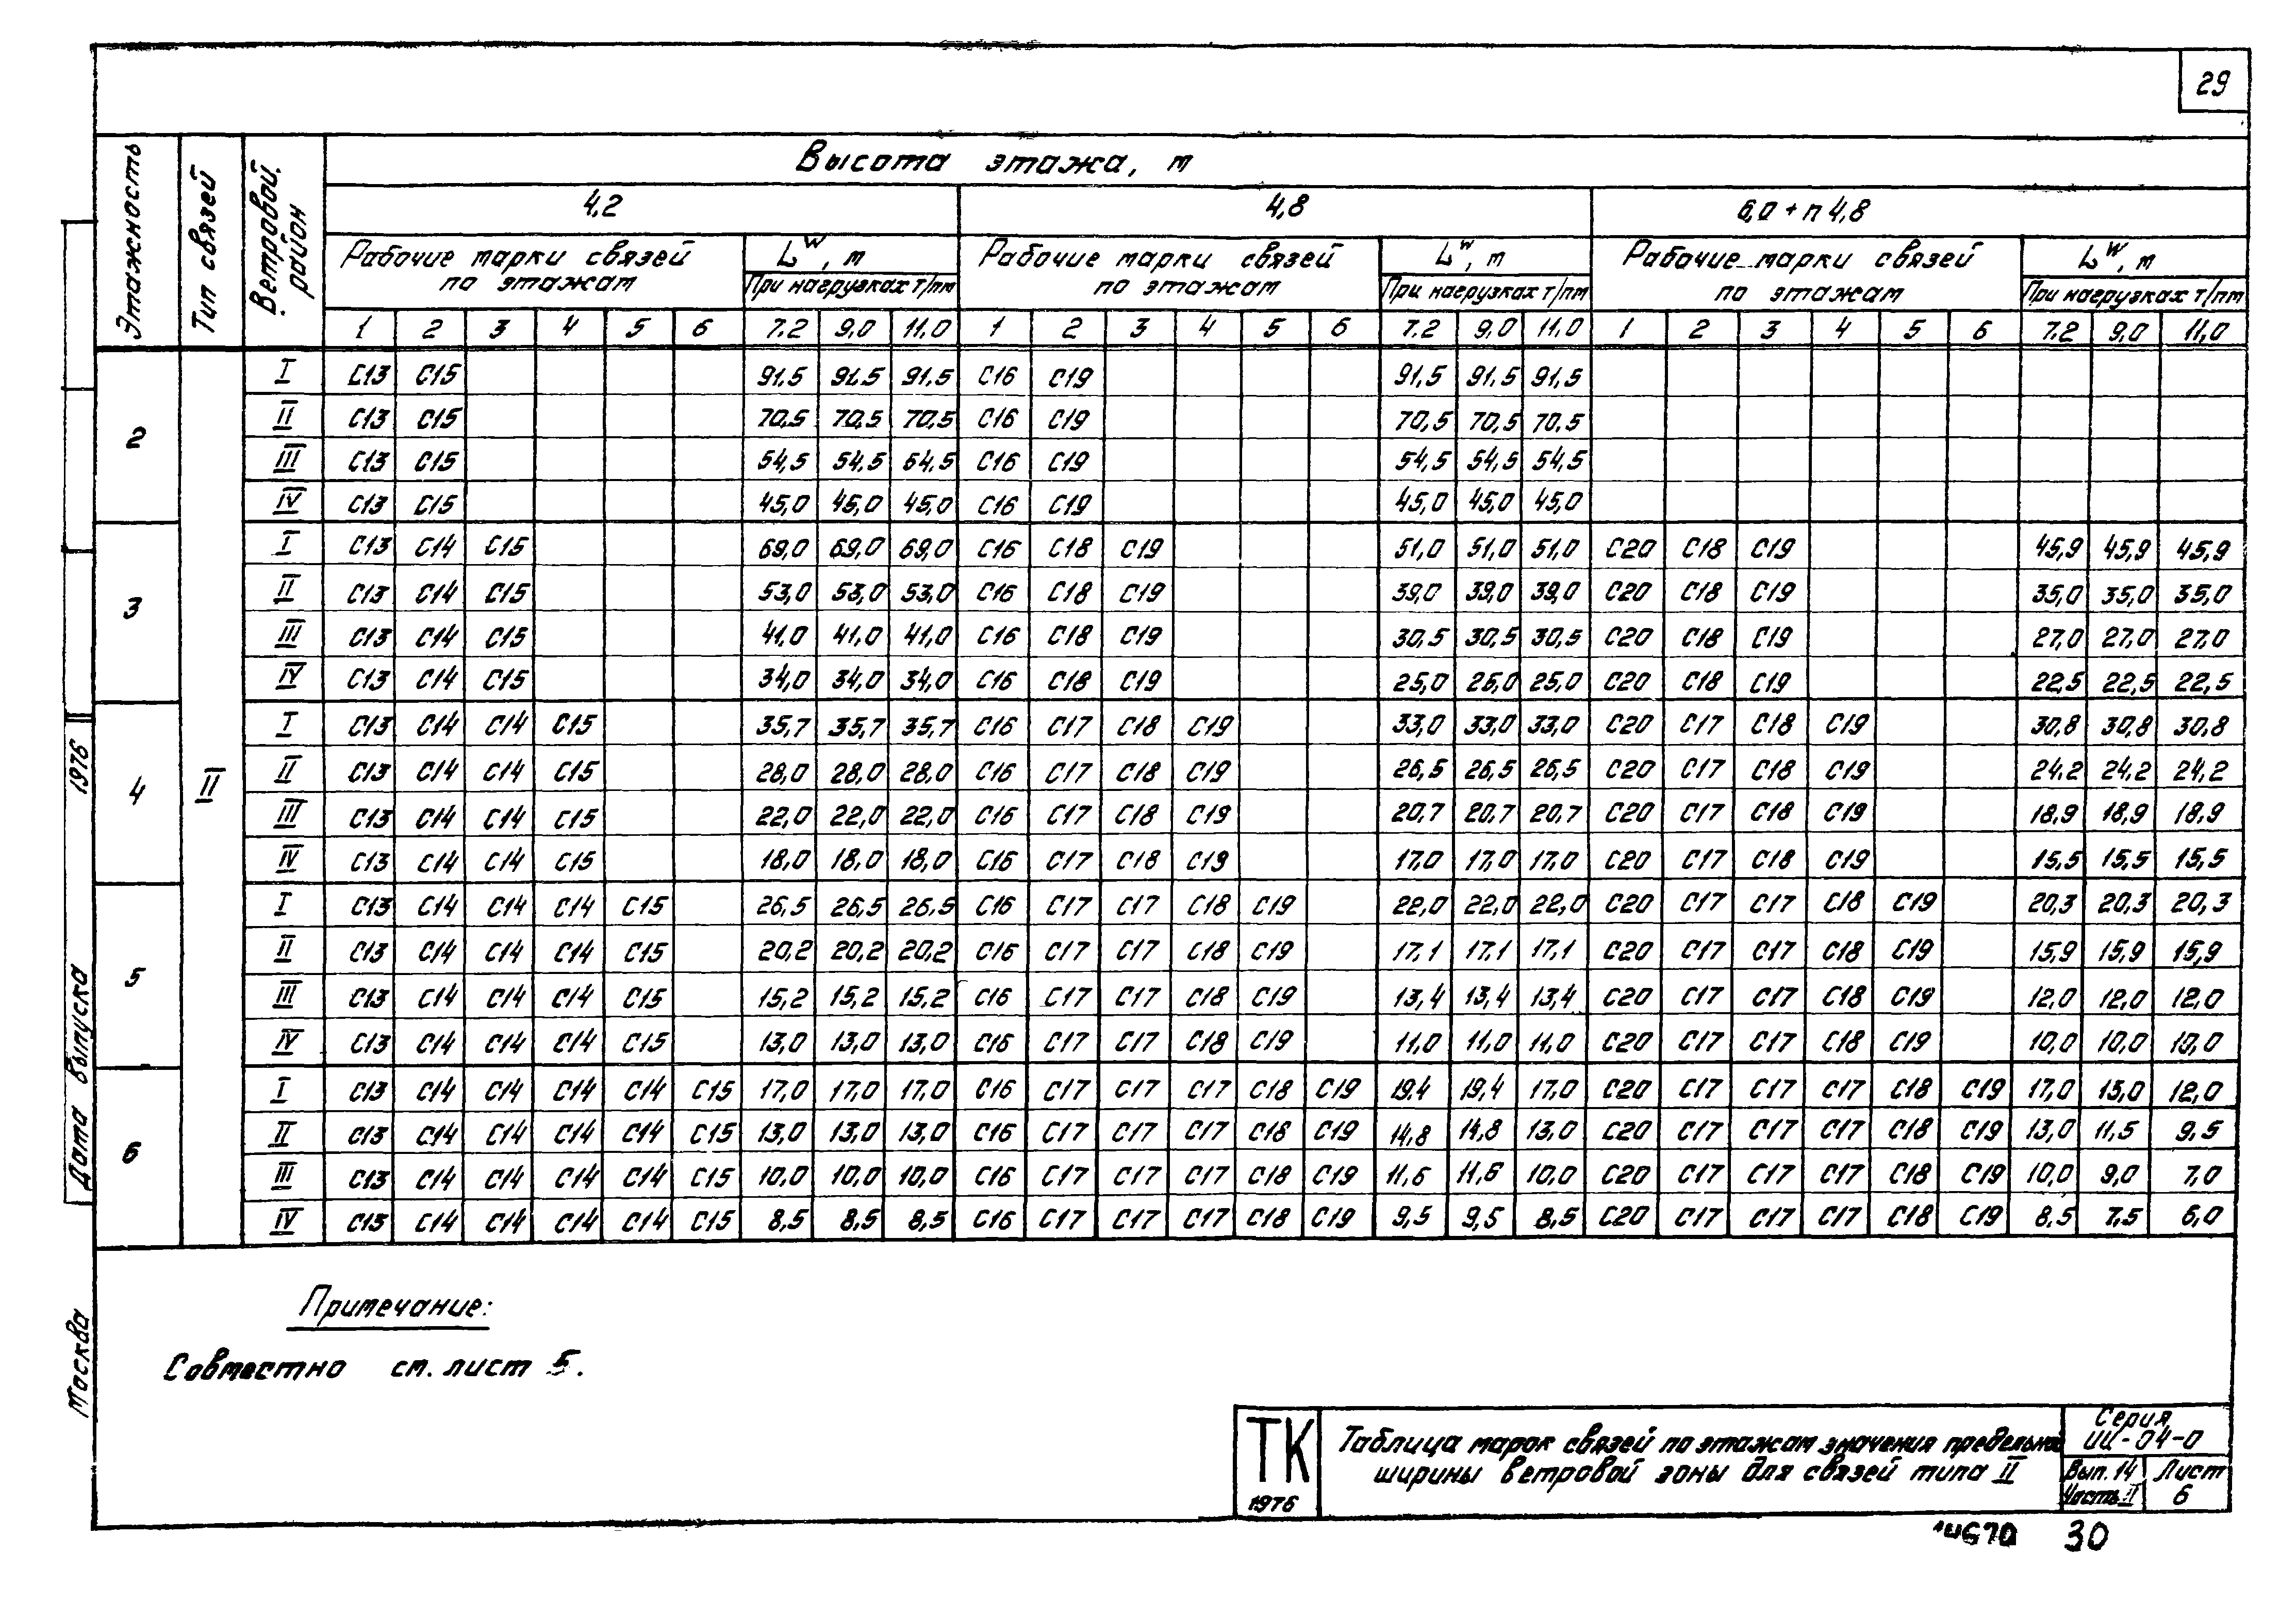 29
Этажность
Тип связей
Ветровой район
Высота этажа, м
4,2 4,8 6,0 + п 4,8
Рабочие марки связей по этажам Lᵂ, м Рабочие марки связей по этажам Lᵂ, м Рабочие марки связей по этажам Lᵂ, м
При нагрузках т/пм При нагрузках т/пм При нагрузках т/пм
1 2 3 4 5 6 7.2 9,0 11.0 1 2 3 4 5 6 7.2 9,0 11.0 1 2 3 4 5 6 7.2 9,0 11,0
2
II
I С13 С15 91.5 91.5 91.5 С16 С19 91,5 91,5 91,5
II С13 С15 70,5 70,5 70,5 С16 С19 70,5 70,5 70,5
III С13 С15 54,5 54,5 54,5 С16 С19 54,5 54,5 54,5
IV С13 С15 45,0 45,0 45,0 С16 С19 45,0 45,0 45,0
3
I С13 С14 С15 69,0 69,0 69,0 С16 С18 С19 51,0 51,0 51,0 С20 С18 С19 45,9 45,9 45,9
II С13 С14 С15 53,0 53,0 53,0 С16 С18 С19 39,0 39,0 39,0 С20 С18 С19 35,0 35,0 35,0
III С13 С14 С15 41,0 41,0 41,0 С16 С18 С19 30,5 30,5 30,5 С20 С18 С19 27,0 27,0 27,0
IV С13 С14 С15 34,0 34,0 34,0 С16 С18 С19 25,0 25,0 25,0 С20 С18 С19 22,5 22,5 22,5
4
I С13 С14 С14 С15 35,7 35,7 35,7 С16 С17 С18 С19 33,0 33,0 33,0 С20 С17 С18 С19 30,8 30,8 30,8
II С13 С14 С14 С15 28,0 28,0 28,0 С16 С17 С18 С19 26,5 26,5 26,5 С20 С17 С18 С19 24,2 24,2 24,2
III С13 С14 С14 С15 22,0 22,0 22,0 С16 С17 С18 С19 20,7 20,7 20,7 С20 С17 С18 С19 18,9 18,9 18,9
IV С13 С14 С14 С15 18,0 18,0 18,0 С16 С17 С18 С19 17,0 17,0 17,0 С20 С17 С18 С19 15,5 15,5 15,5
5
I С13 С14 С14 С14 С15 26,5 26,5 26,5 С16 С17 С17 С18 С19 22,0 22,0 22,0 С20 С17 С17 С18 С19 20,3 20,3 20,3
II С13 С14 С14 С14 С15 20,2 20,2 20,2 С16 С17 С17 С18 С19 17,1 17,1 17,1 С20 С17 С17 С18 С19 15,9 15,9 15,9
III С13 С14 С14 С14 С15 15,2 15,2 15,2 С16 С17 С17 С18 С19 13,4 13,4 13,4 С20 С17 С17 С18 С19 12,0 12,0 12,0
IV С13 С14 С14 С14 С15 13,0 13,0 13,0 С16 С17 С17 С18 С19 11,0 11,0 11,0 С20 С17 С17 С18 С19 10,0 10,0 10,0
6
I С13 С14 С14 С14 С14 С15 17,0 17,0 17,0 С16 С17 С17 С17 С18 С19 19.4 19,4 17,0 С20 С17 С17 С17 С18 С19 17,0 13,0 12,0
II С13 С14 С14 С14 С14 С15 13,0 13,0 13,0 С16 С17 С17 С17 С18 С19 14,8 14,8 13,0 С20 С17 С17 С17 С18 С19 13,0 11,5 9,5
III С13 С14 С14 С14 С14 С15 10,0 10,0 10,0 С16 С17 С17 С17 С18 С19 11,6 11,6 10,0 С20 С17 С17 С17 С18 С19 10,0 9,0 7,0
IV С13 С14 С14 С14 С14 С15 8,5 8,5 8,5 С16 С17 С17 С17 С18 С19 9,5 9,5 8,5 С20 С17 С17 С17 С18 С19 8,5 7,5 6,0
Примечание:
Совместно см. лист 5.
Москва Дата выпуска 1976
ТК
1976
Таблица марок связей по этажам значения предельно
ширины ветровой зоны для связей типа II
Серия
ИИ-04-0
Вып. 14
Часть II
Лист
6
30